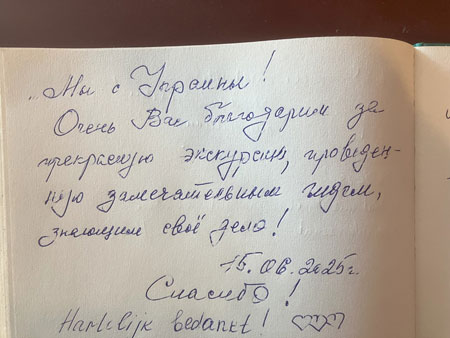 Мы с Украины!
Очень Вас благодарим за
прекрасную экскурсию, проведен-
ную замечательным гидом,
знающим своё дело!
15.06.2025г.
Спасибо!
Hartelijk bedankt!